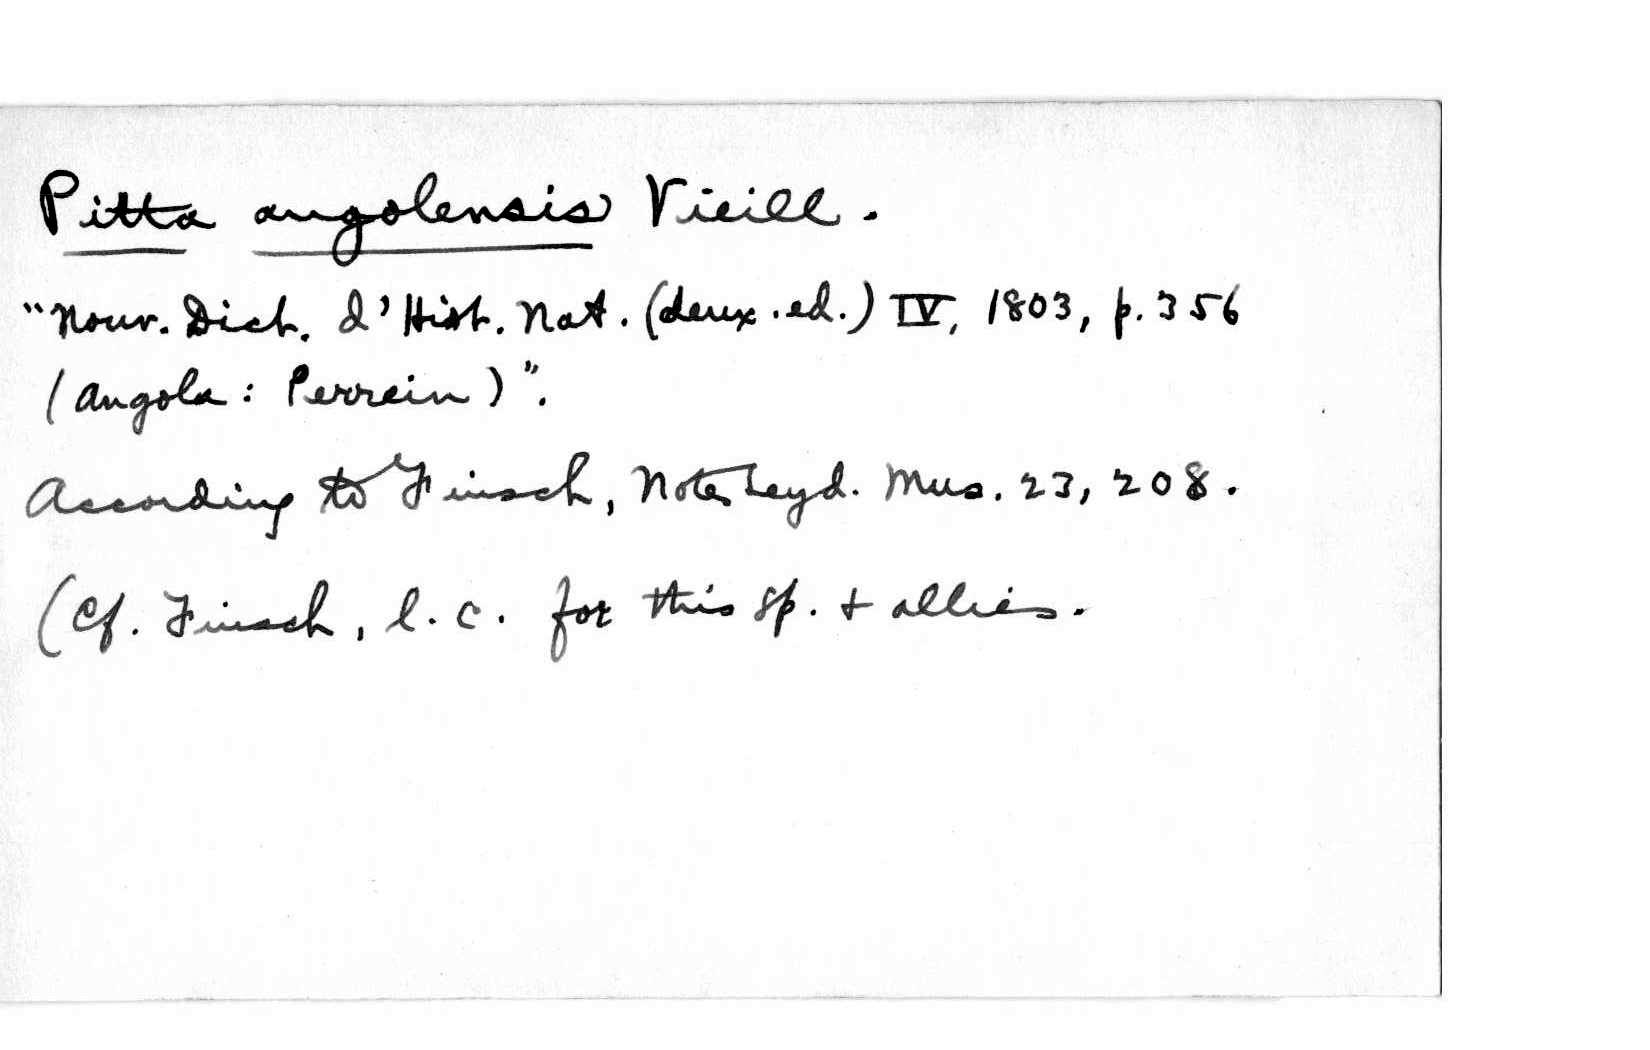 Pitta angolensis Vieill.
"Nouv. Dict. d'Hist. Nat. (deux. ed.) IV, 1803, p. 356
(Angola: Perrein)".
According to Finsch, Notes Leyd. Mus. 23, 208.
(Cf. Finsch, l. c. for this sp. + allies.